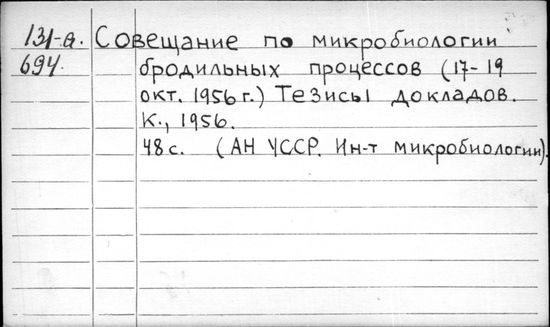 131-а. Совещание по микробиологии
694. бродильных процессов (17-19
окт. 1956 г.) Тезисы докладов.
К., 1956.
48 с. (АН УССР. Ин-т микробиологии).